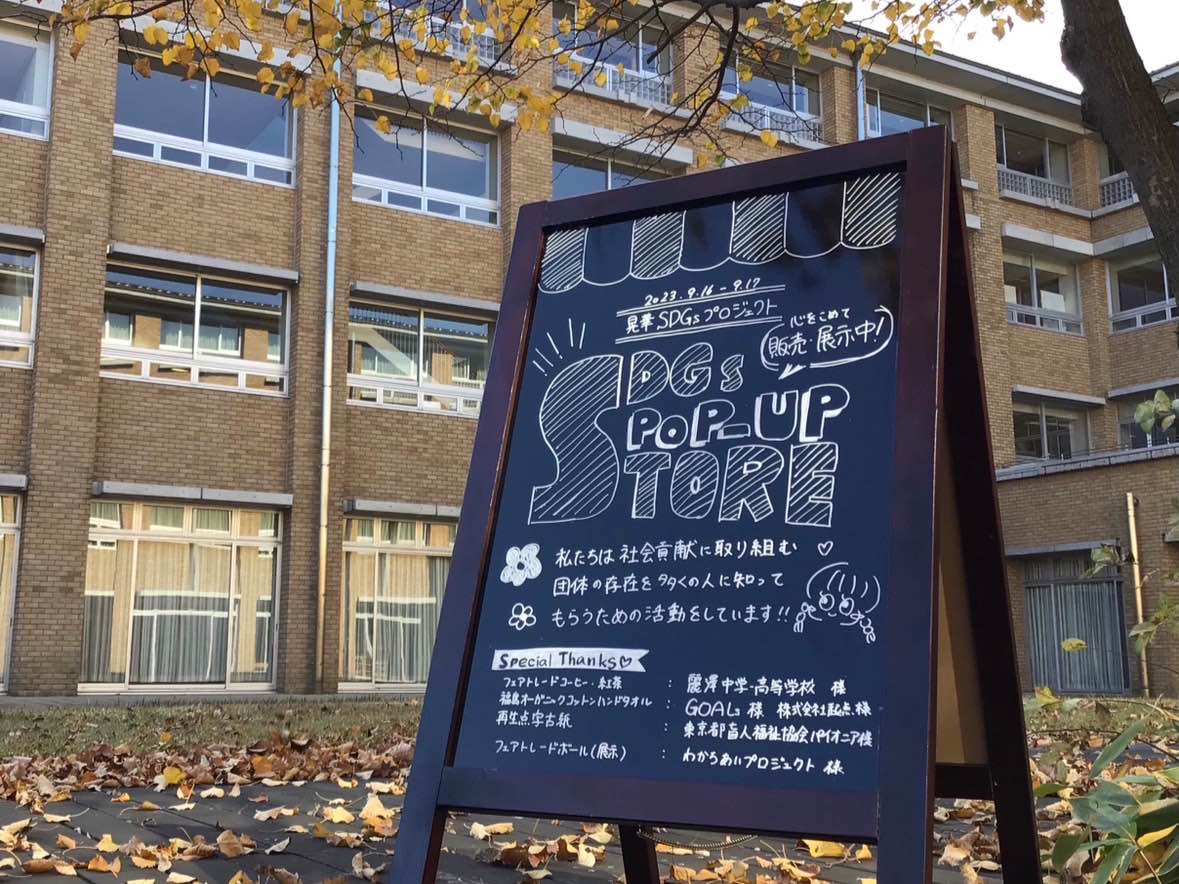 2023.9.16-9.17
見華SDGsプロジェクト
心をこめて
販売・展示中!
SDGs
POP-UP
STORE
私たちは社会貢献に取り組む
団体の存在を多くの人に知って
もらうための活動をしています!!
Special Thanks♡
フェアトレードコーヒー・紅茶 : 麗澤中学・高等学校 様
福島オーガニックコットンハンドタオル : GOALs様 株式会社起点様
再生点字古紙 : 東京都盲人福祉協会パイオニア様
フェアトレードボール(展示) : わかちあいプロジェクト 様